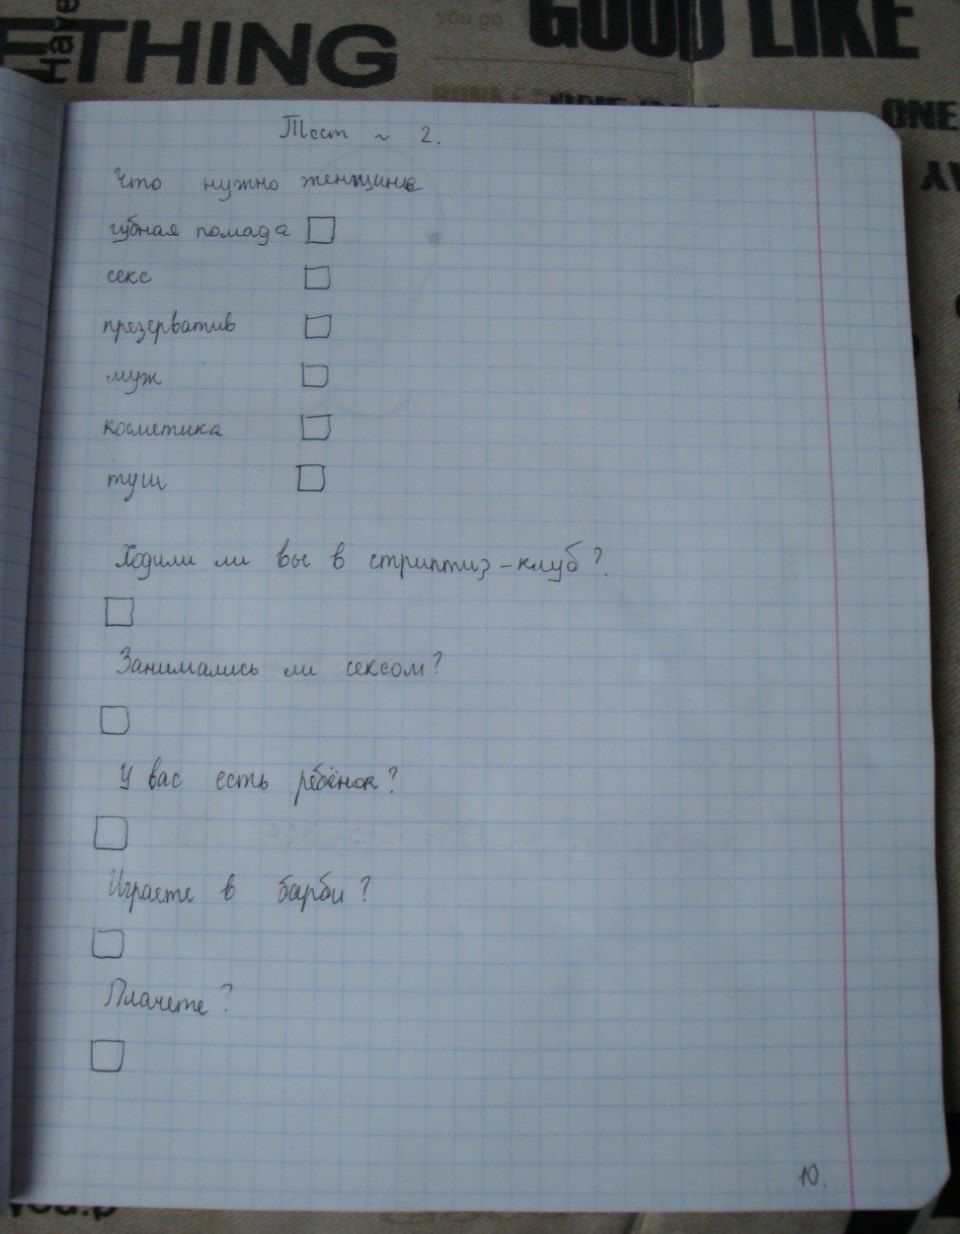 THING
Have
you go
GOOD LIKE
ONE
AY
Тест ~ 2.
Что нужно женщине
губная помада
секс
презерватив
муж
косметика
туш
Ходили ли вы в стриптиз-клуб?
Занимались ли сексом?
У вас есть ребёнок?
Играете в барби?
Плачете?
10.
you.p